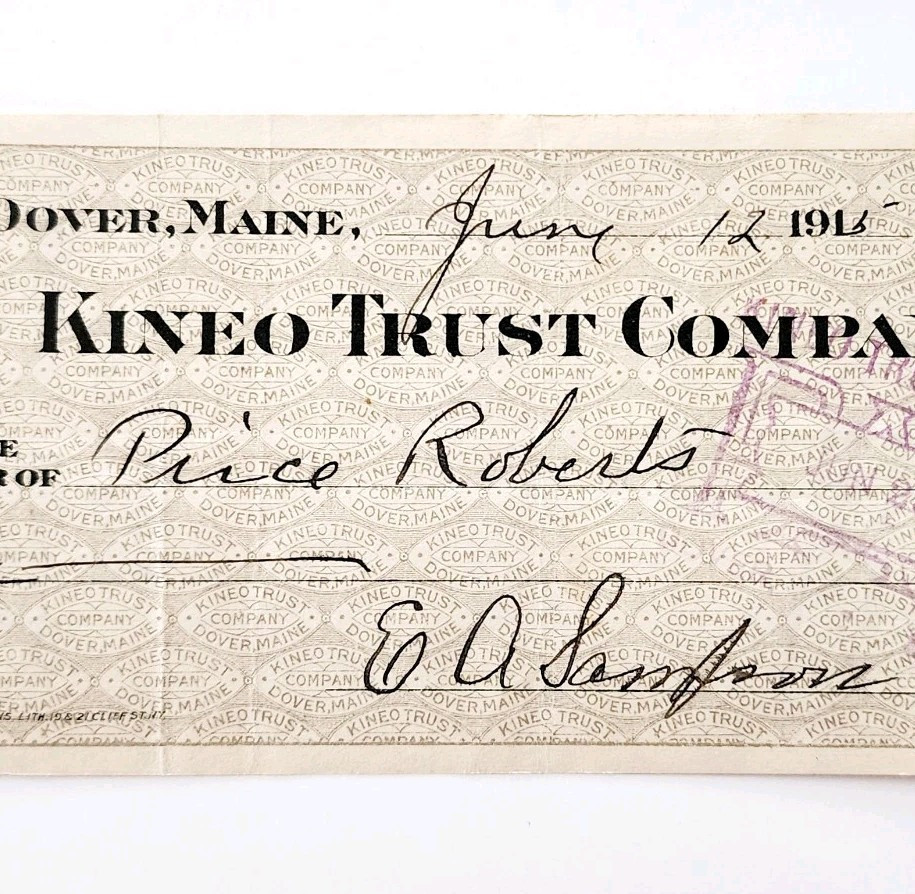 DOVER, MAINE, June 12 1915
KINEO TRUST COMPA
E
R OF Price Roberts
E A Sampson
LITH. 19 & 21 CLIFF ST. N.Y.
KINEO TRUST
COMPANY
DOVER, MAINE